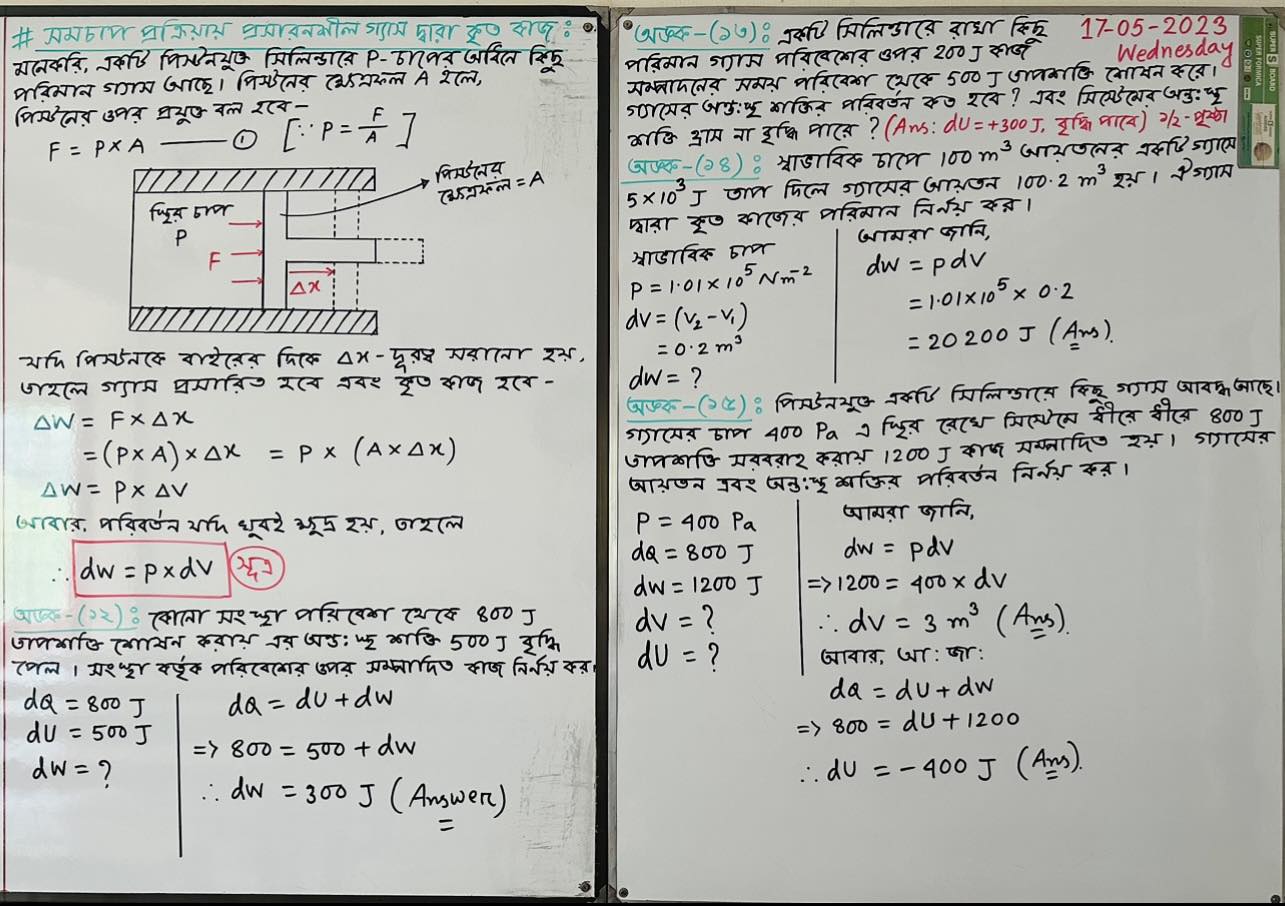 # সমচাপ প্রক্রিয়ায় প্রসারনশীল গ্যাস দ্বারা কৃত কাজ :
মনেকরি, একটি পিস্টনযুক্ত সিলিন্ডারে P-চাপের অধিনে কিছু
পরিমান গ্যাস আছে। পিস্টনের ক্ষেত্রফল A হলে,
পিস্টনের ওপর প্রযুক্ত বল হবে-
F = P × A —— ① [∵ P = F/A]
পিস্টনের
ক্ষেত্রফল = A
স্থির চাপ
P
F
Δx
যদি পিস্টনকে বাইরের দিকে Δx - দূরত্ব সরানো হয়,
তাহলে গ্যাস প্রসারিত হবে এবং কৃত কাজ হবে -
ΔW = F × Δx
= (P × A) × Δx = P × (A × Δx)
ΔW = P × ΔV
আবার, পরিবর্তন যদি খুবই ক্ষুদ্র হয়, তাহলে
∴ dW = P × dV সূত্র
অংক-(১২) : কোনো সংস্থা পরিবেশ থেকে 800 J
তাপশক্তি শোষন করায় এর অন্ত:স্থ শক্তি 500 J বৃদ্ধি
পেল। সংস্থা কর্তৃক পরিবেশের ওপর সম্পাদিত কাজ নির্নয় কর।
dQ = 800 J
dU = 500 J
dW = ?
dQ = dU + dW
=> 800 = 500 + dW
∴ dW = 300 J (Answer)
17-05-2023
Wednesday
অংক-(১৩) : একটি সিলিন্ডারে রাখা কিছু
পরিমান গ্যাস পরিবেশের ওপর 200 J কাজ
সম্পাদনের সময় পরিবেশ থেকে 500 J তাপশক্তি শোষন করে।
গ্যাসের অন্ত:স্থ শক্তির পরিবর্তন কত হবে? এবং সিস্টেমের অন্ত:স্থ
শক্তি হ্রাস না বৃদ্ধি পাবে? (Ans: dU = +300 J, বৃদ্ধি পাবে) ১/২-পৃষ্ঠা
অংক-(১৪) : স্বাভাবিক চাপে 100 m³ আয়তনের একটি গ্যাসে
5 × 10³ J তাপ দিলে গ্যাসের আয়তন 100.2 m³ হয়। ঐ গ্যাস
দ্বারা কৃত কাজের পরিমান নির্নয় কর।
স্বাভাবিক চাপ
P = 1.01 × 10⁵ Nm⁻²
dV = (V₂ - V₁)
= 0.2 m³
dW = ?
আমরা জানি,
dW = PdV
= 1.01 × 10⁵ × 0.2
= 20200 J (Ans).
অংক-(১৫) : পিস্টনযুক্ত একটি সিলিন্ডারে কিছু গ্যাস আবদ্ধ আছে।
গ্যাসের চাপ 400 Pa এ স্থির রেখে সিস্টেমে ধীরে ধীরে 800 J
তাপশক্তি সরবরাহ করায় 1200 J কাজ সম্পাদিত হয়। গ্যাসের
আয়তন এবং অন্ত:স্থ শক্তির পরিবর্তন নির্নয় কর।
P = 400 Pa
dQ = 800 J
dW = 1200 J
dV = ?
dU = ?
আমরা জানি,
dW = PdV
=> 1200 = 400 × dV
∴ dV = 3 m³ (Ans).
আবার, আ: জা:
dQ = dU + dW
=> 800 = dU + 1200
∴ dU = -400 J (Ans).